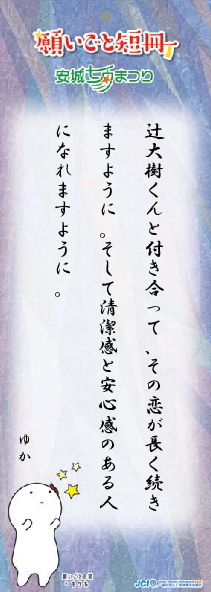 願いごと短冊
安城七夕まつり
辻大樹くんと付き合って、その恋が長く続き
ますように。そして清潔感と安心感のある人
になれますように。
ゆか
願いごと短冊
JCI